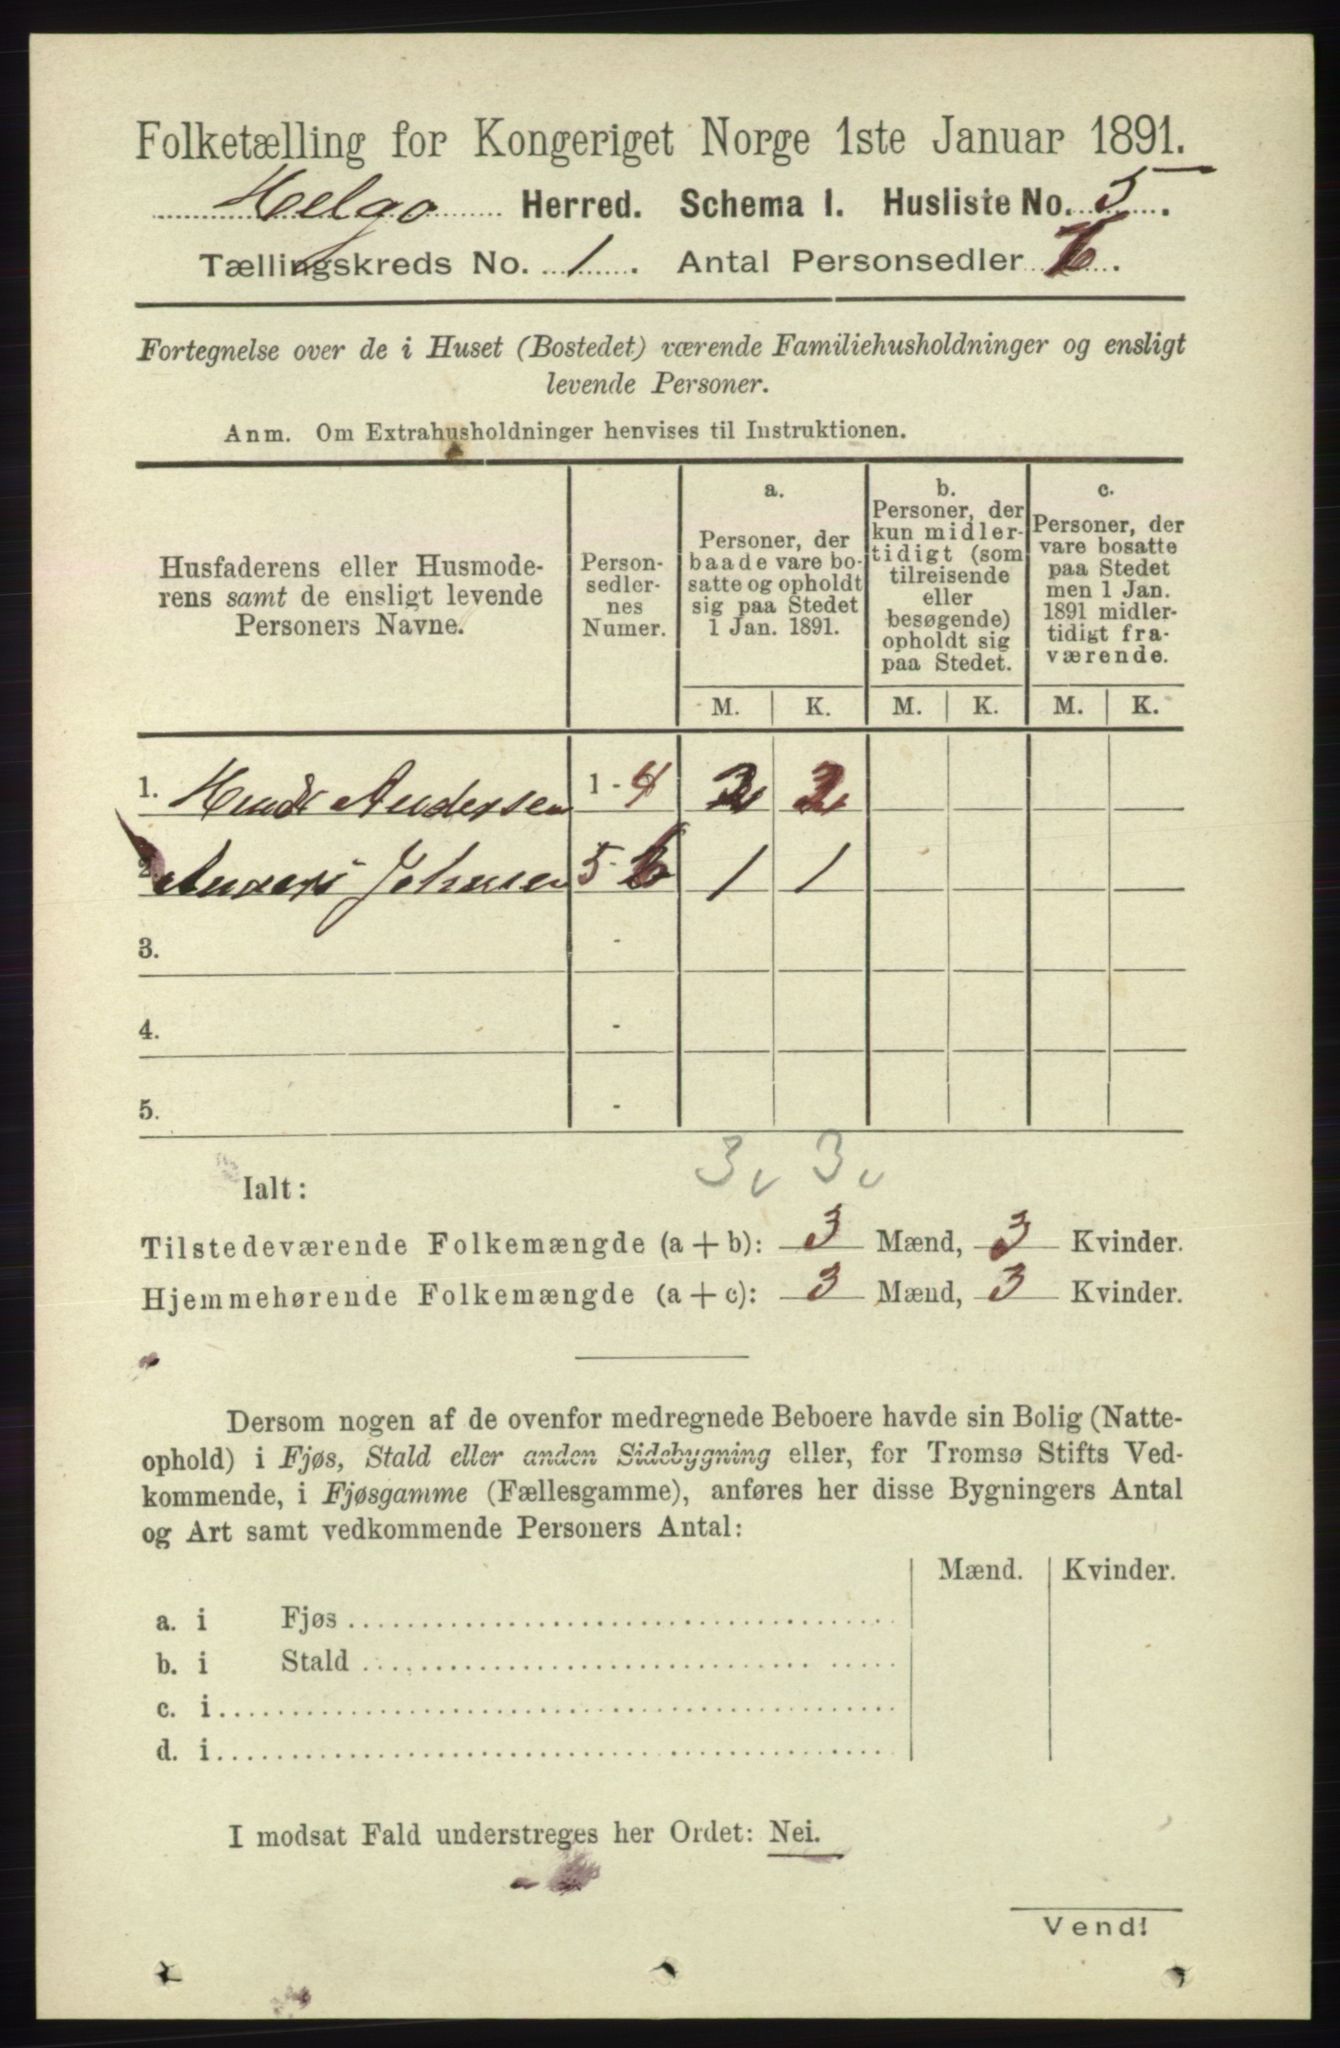 Folketælling for Kongeriget Norge 1ste Januar 1891.
Helgø Herred. Schema I. Husliste No. 5.
Tællingskreds No. 1. Antal Personsedler 6.
Fortegnelse over de i Huset (Bostedet) værende Familiehusholdninger og ensligt
levende Personer.
Anm. Om Extrahusholdninger henvises til Instruktionen.
Husfaderens eller Husmode-
rens samt de ensligt levende
Personers Navne.
Person-
sedler-
nes
Numer.
a.
Personer, der
baade vare bo-
satte og opholdt
sig paa Stedet
1 Jan. 1891.
b.
Personer, der
kun midler-
tidigt (som
tilreisende
eller
besøgende)
opholdt sig
paa Stedet.
c.
Personer, der
vare bosatte
paa Stedet
men 1 Jan.
1891 midler-
tidigt fra-
værende.
M. K. M. K. M. K.
1. Andersen 1 - 4 2 2
2. Anders Johnsen 5 - 6 1 1
3. -
4. -
5. -
3 3
Ialt:
Tilstedeværende Folkemængde (a + b): 3 Mænd, 3 Kvinder.
Hjemmehørende Folkemængde (a + c): 3 Mænd, 3 Kvinder.
Dersom nogen af de ovenfor medregnede Beboere havde sin Bolig (Natte-
ophold) i Fjøs, Stald eller anden Sidebygning eller, for Tromsø Stifts Ved-
kommende, i Fjøsgamme (Fællesgamme), anføres her disse Bygningers Antal
og Art samt vedkommende Personers Antal:
Mænd. Kvinder.
a. i Fjøs
b. i Stald
c. i
d. i
I modsat Fald understreges her Ordet: Nei.
Vend!